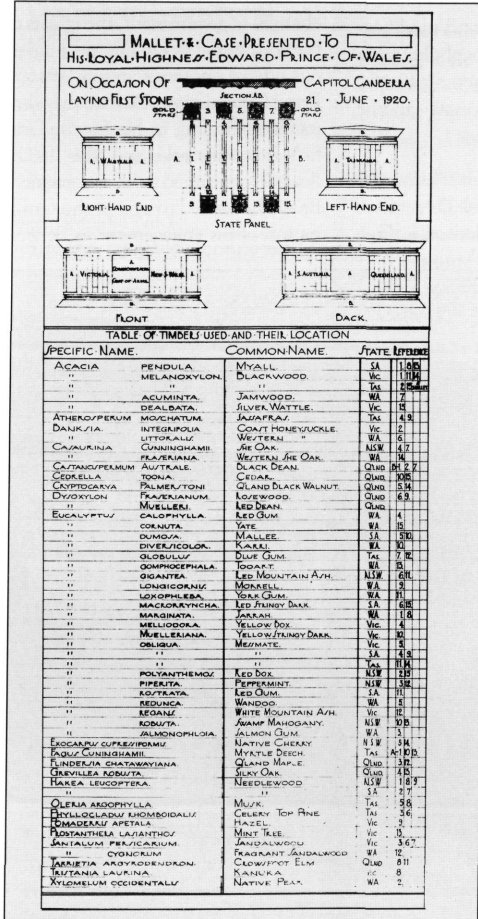 MALLET & CASE PRESENTED TO
HIS ROYAL HIGHNESS EDWARD PRINCE OF WALES.
ON OCCASION OF
LAYING FIRST STONE
CAPITOL CANBERRA
21 JUNE 1920.
SECTION A.B.
GOLD STARS
GOLD STARS
3. 5. 7.
A. B.
9. 11. 13. 15.
STATE PANEL
A. W AUSTRALIA A.
RIGHT HAND END
A. TASMANIA A.
LEFT HAND END.
A. VICTORIA. COMMONWEALTH COAT OF ARMS. NEW S WALES. A.
FRONT
A. S. AUSTRALIA. A QUEENSLAND. A
BACK.
TABLE OF TIMBERS USED AND THEIR LOCATION
SPECIFIC NAME. COMMON NAME. STATE. REFERENCE
ACACIA PENDULA MYALL. SA 1 8
" MELANOXYLON. BLACKWOOD. VIC. 1 11 14
" " " TAS. 2
" ACUMINTA. JAMWOOD. WA 7
" DEALBATA. SILVER WATTLE. VIC. 15
ATHEROSPERUM MOSCHATUM. SASSAFRAS. TAS. 4 9.
BANKSIA. INTEGRIPOLIA COAST HONEYSUCKLE. VIC. 2
" LITTORALIS. WESTERN " W.A. 6.
CASAURINA CUNNINGHAMII. SHE OAK. N.S.W. 4 7
" FRASERIANA. WESTERN SHE OAK. WA 14
CASTANOSPERMUM AUSTRALE. BLACK BEAN. QLND. 2 7
CEDRELLA TOONA. CEDAR. QLND. 10 15
CRYPTOCARYA PALMERSTONI QLAND BLACK WALNUT. QLND. 5 14
DYSOXYLON FRASERIANUM. ROSEWOOD. QLND 6 9.
" MUELLERI. RED BEAN. QLND
EUCALYPTUS CALOPHYLLA. RED GUM WA 4
" CORNUTA. YATE WA 15
" DUMOSA. MALLEE. SA 5 10
" DIVERSICOLOR. KARRI. WA 10
" GLOBULUS BLUE GUM. TAS 7 12
" GOMPHOCEPHALA. TOOART. WA 13
" GIGANTEA. RED MOUNTAIN ASH. N.S.W. 6 11
" LONGICORNIS. MORRELL. WA 9
" LOXOPHLEBA. YORK GUM. WA 11
" MACRORRYNCHA. RED STRINGY BARK. S.A. 6 15
" MARGINATA. JARRAH. WA 1 8
" MELLIODORA. YELLOW BOX. VIC. 4
" MUELLERIANA. YELLOW STRINGY BARK. VIC. 10
" OBLIQUA. MESSMATE. VIC. 5
" " " SA 4 9
" " " TAS 11 14
" POLYANTHEMOS RED BOX. NSW 2 15
" PIPERITA. PEPPERMINT. NSW 3 12
" ROSTRATA. RED GUM. SA 11
" REDUNCA. WANDOO. WA 5
" REGANS. WHITE MOUNTAIN ASH. VIC 12
" ROBUSTA. SWAMP MAHOGANY. NSW 10 13
" SALMONOPHLOIA. SALMON GUM. WA 3
EXOCARPUS CUPRESSIFORMUS NATIVE CHERRY N S W 5 14
FAGUS CUNINGHAMII. MYRTLE BEECH. TAS A-1 10 13
FLINDERSIA CHATAWAYIANA. QLAND MAPLE. QLND 3 12
GREVILLEA ROBUSTA. SILKY OAK. QLND 4 13
HAKEA LEUCOPTERA. NEEDLEWOOD NSW 1 8 9
" " " SA 2 7
OLERIA ARGOPHYLLA MUSK. TAS 5 8
PHYLLOCLADUS RHOMBOIDALIS. CELERY TOP PINE TAS 3 6
POMADERRIS APETALA HAZEL VIC 9
PROSTANTHERA LASIANTHOS MINT TREE. VIC 13
SANTALUM PERSICARIUM. SANDALWOOD VIC 3 6 7
" CYGNORUM FRAGRANT SANDALWOOD WA 12
TARRIETIA ARGYRODENDRON. CROWSFOOT ELM QLND 8 11
TRISTANIA LAURINA. KANUKA 8
XYLOMELUM OCCIDENTALIS NATIVE PEAR. WA 2